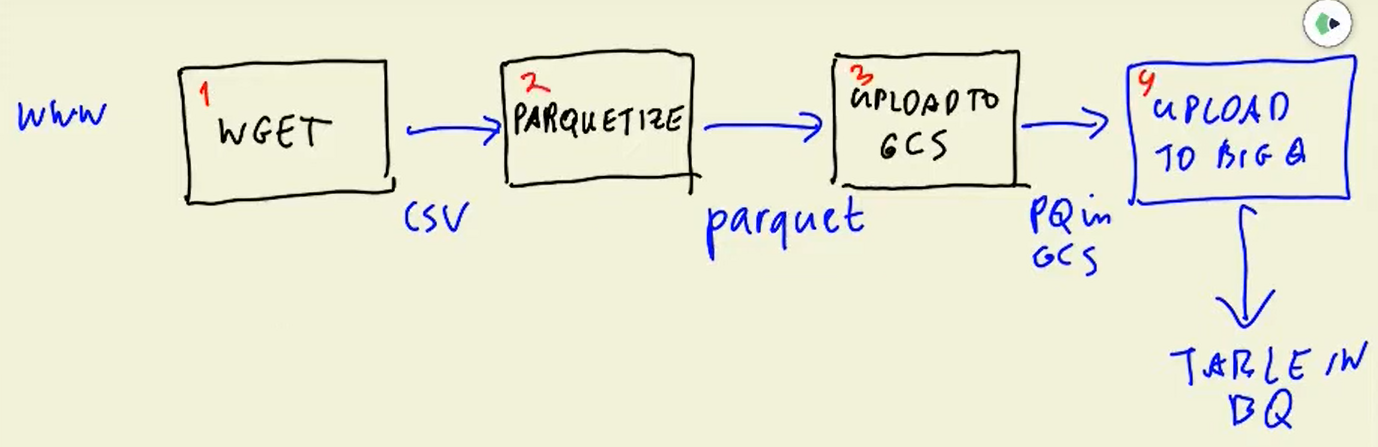 www
1
WGET
CSV
2
PARQUETIZE
parquet
3
UPLOAD TO
GCS
PQ in
GCS
4
UPLOAD
TO BIG Q
TABLE IN
BQ